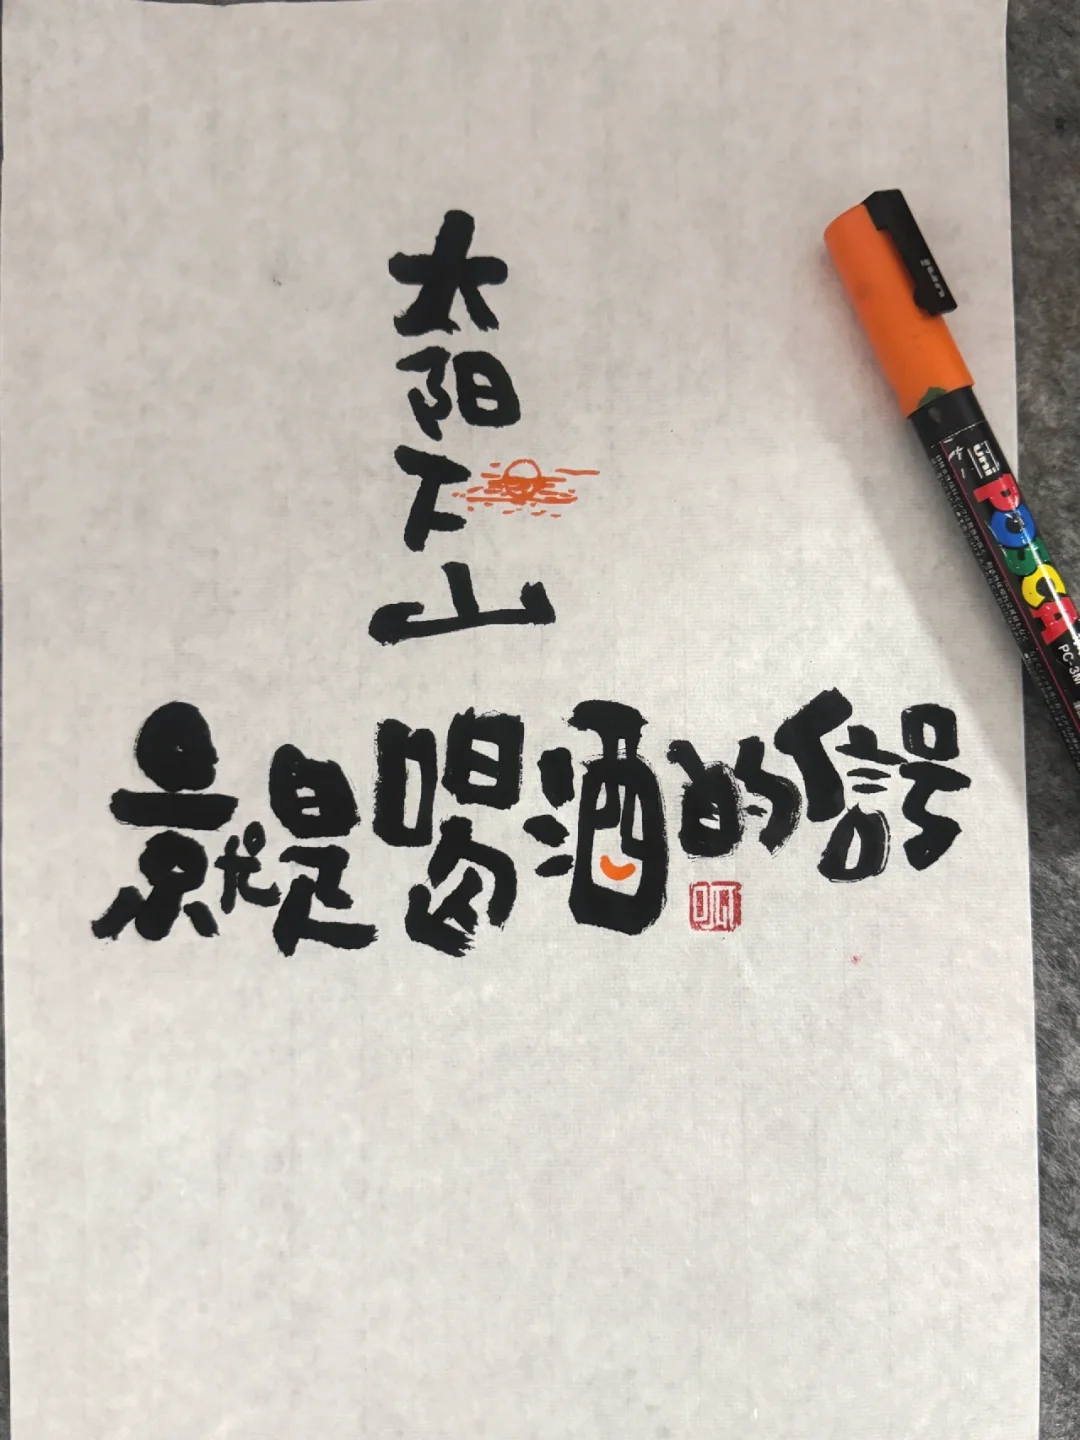 太阳下山
就是喝酒的信号
uni
uni
POSCA
PC-3M